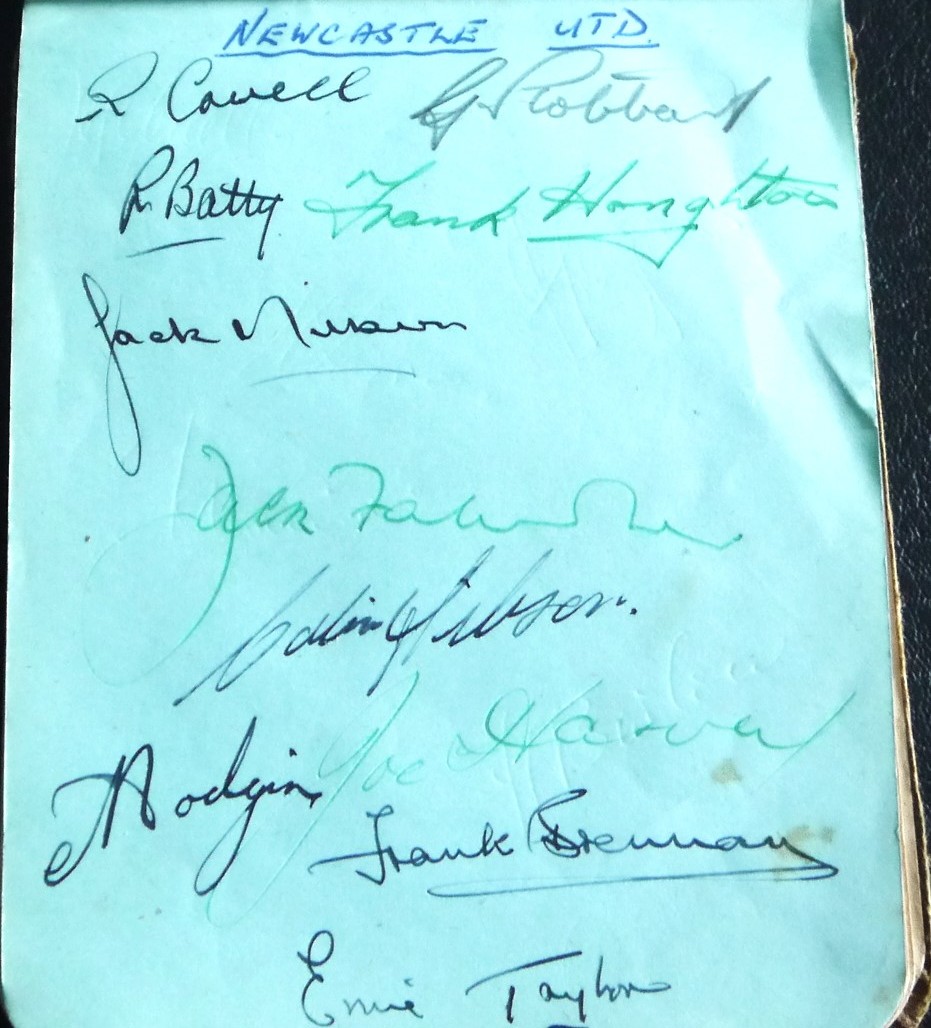 NEWCASTLE UTD.
R Cowell G Stobbart
R. Batty Frank Houghton
Jack Milburn
Jack Fairbrother
Colin Gibson.
Joe Harvey
Hodgin
Frank Brennan
Ernie Taylor